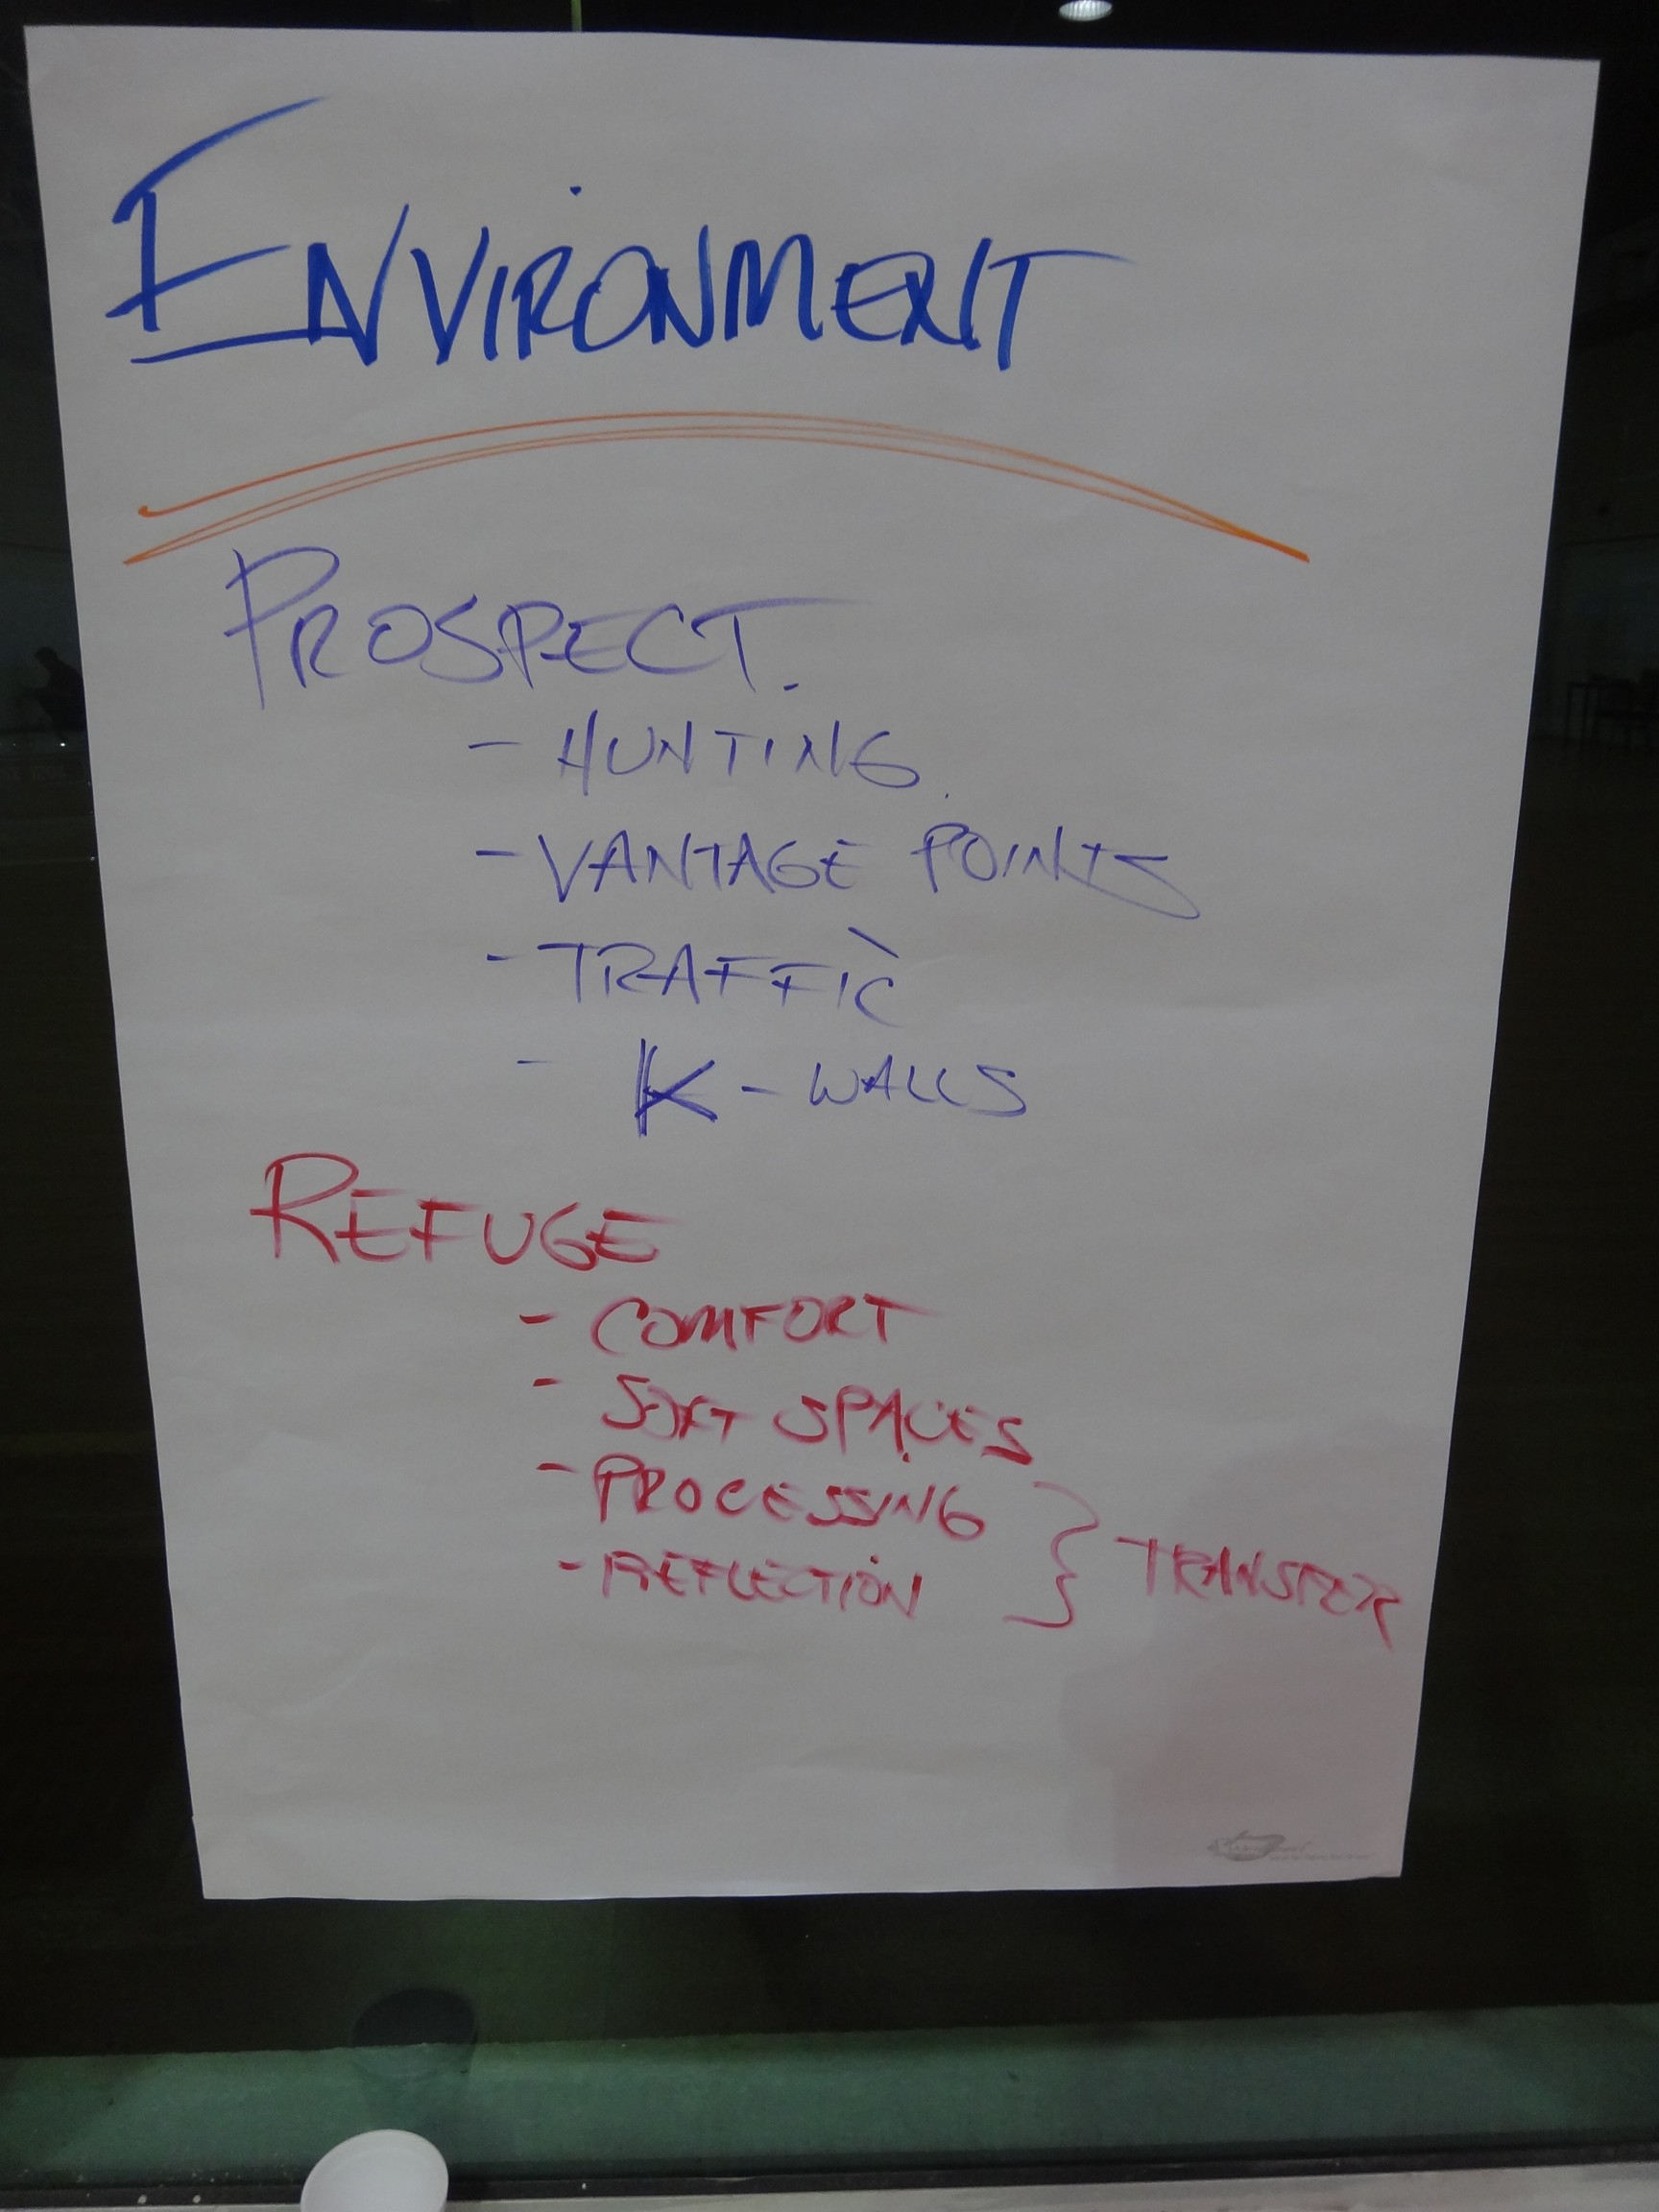 ENVIRONMENT
PROSPECT.
- HUNTING.
- VANTAGE POINTS
- TRAFFIC
- K - WALLS
REFUGE
- COMFORT
- SOFT SPACES
- PROCESSING
- REFLECTION } TRANSFER